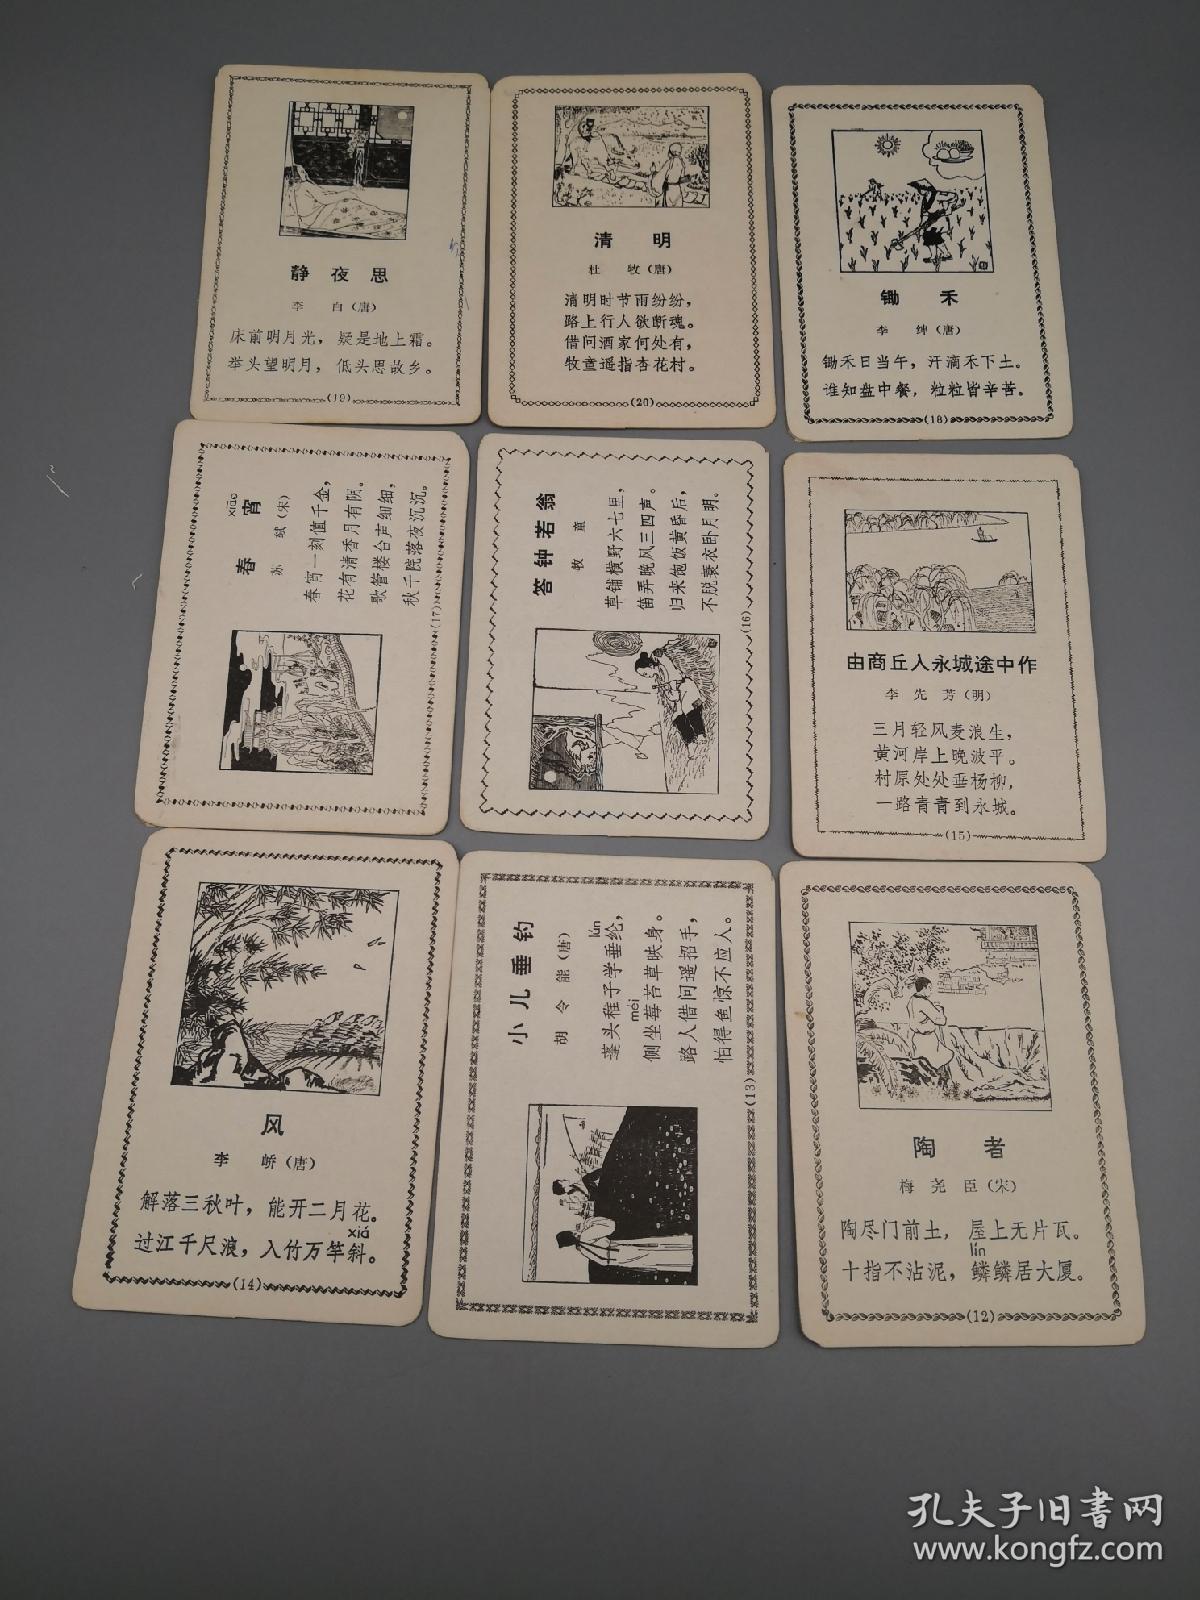 静夜思
李白(唐)
床前明月光，疑是地上霜。
举头望明月，低头思故乡。
(19)
清明
杜牧(唐)
清明时节雨纷纷，
路上行人欲断魂。
借问酒家何处有，
牧童遥指杏花村。
(20)
锄禾
李绅(唐)
锄禾日当午，汗滴禾下土。
谁知盘中餐，粒粒皆辛苦。
(18)
xiāo
春宵
苏轼(宋)
春宵一刻值千金，
花有清香月有阴。
歌管楼台声细细，
秋千院落夜沉沉。
(17)
答钟若翁
牧童
草铺横野六七里，
笛弄晚风三四声。
归来饱饭黄昏后，
不脱蓑衣卧月明。
(16)
由商丘入永城途中作
李先芳(明)
三月轻风麦浪生，
黄河岸上晚波平。
村原处处垂杨柳，
一路青青到永城。
(15)
风
李峤(唐)
解落三秋叶，能开二月花。
xiá
过江千尺浪，入竹万竿斜。
(14)
小儿垂钓
胡令能(唐)
lún
蓬头稚子学垂纶，
méi
侧坐莓苔草映身。
路人借问遥招手，
怕得鱼惊不应人。
(13)
陶者
梅尧臣(宋)
陶尽门前土，屋上无片瓦。
lín
十指不沾泥，鳞鳞居大厦。
(12)
孔夫子旧书网
www.kongfz.com